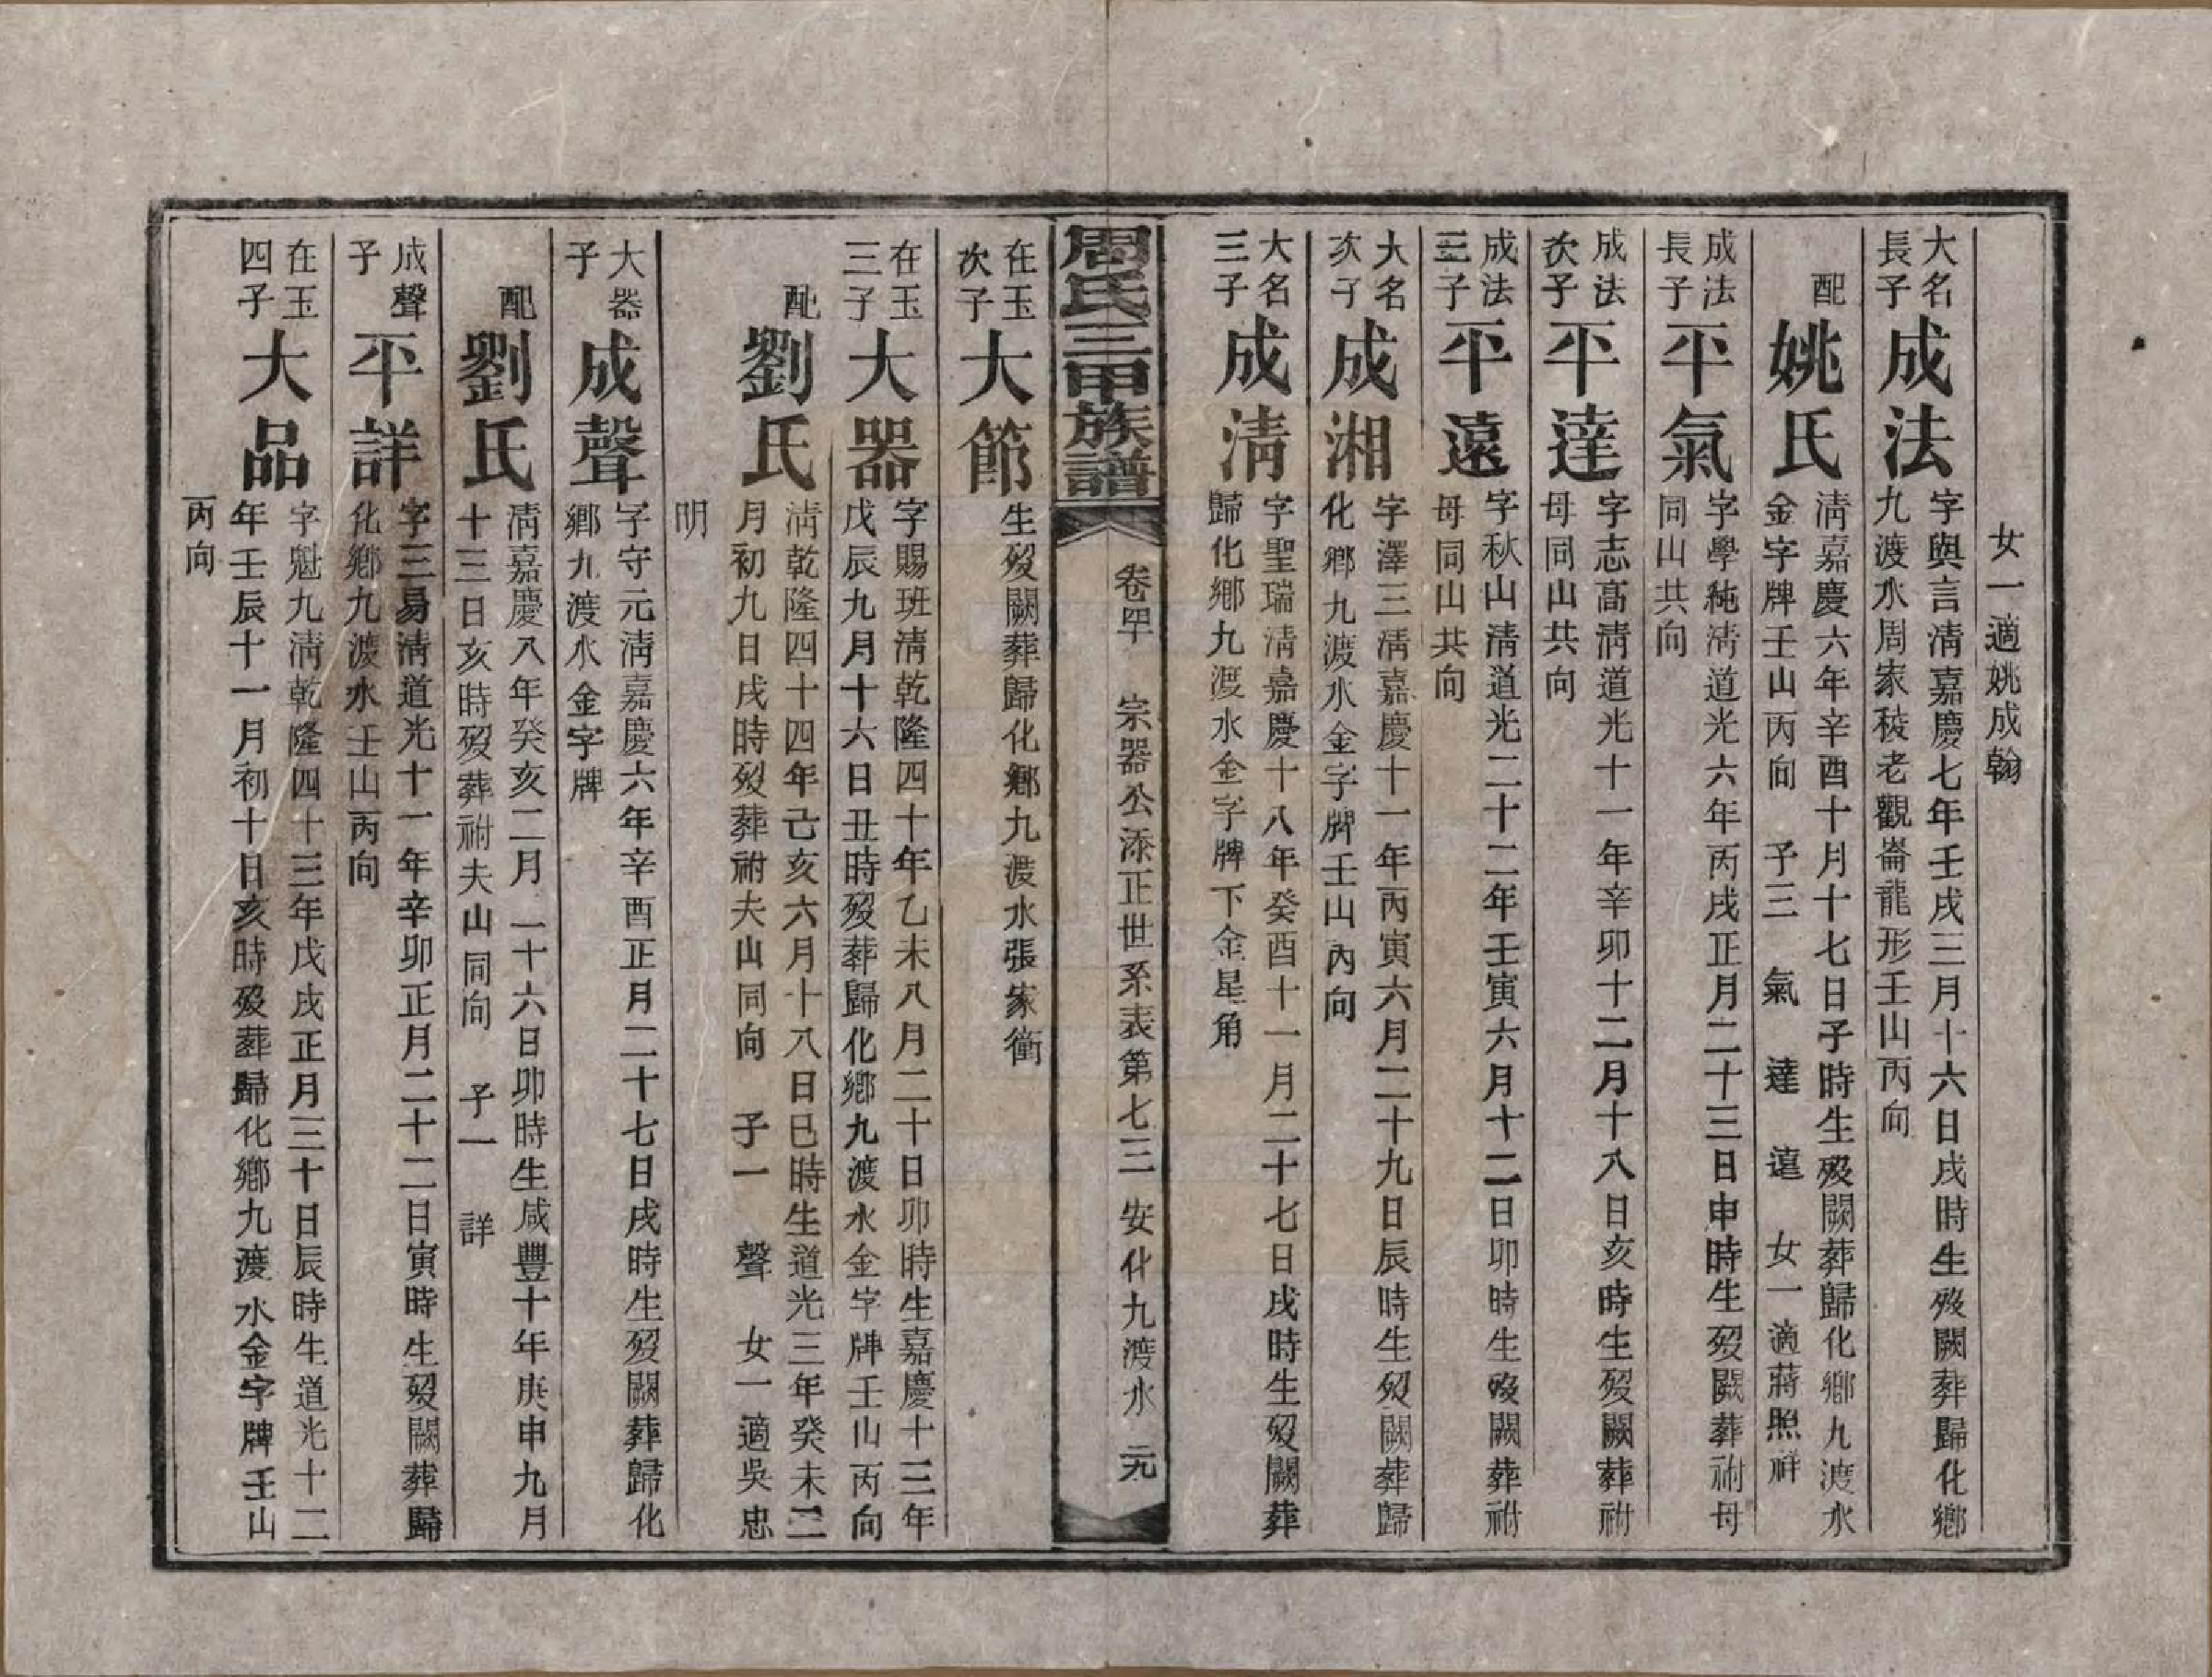 女一適姚成翰
大名長子
成法
字與言淸嘉慶七年壬戌三月十六日戌時生歿闕葬歸化鄉
九渡水周家稜老觀崙龍形壬山丙向
配
姚氏
淸嘉慶六年辛酉十月十七日子時生歿闕葬歸化鄉九渡水
金字牌壬山丙向 子三 氣 達 遠 女一適蔣照祥
成法長子
平氣
字學純淸道光六年丙戌正月二十三日申時生歿闕葬祔母
同山共向
成法次子
平達
字志高淸道光十一年辛卯十二月十八日亥時生歿闕葬祔
母同山共向
成法三子
平遠
字秋山淸道光二十二年壬寅六月十二日卯時生歿闕葬祔
母同山共向
大名次子
成湘
字澤三淸嘉慶十一年丙寅六月二十九日辰時生歿闕葬歸
化鄉九渡水金字牌壬山內向
大名三子
成淸
字聖瑞淸嘉慶十八年癸酉十一月二十七日戌時生歿闕葬
歸化鄉九渡水金字牌下金星角
周氏三甲族譜
卷四十 宗器公添正世系表第七三 安化九渡水 元
在玉次子
大節
生歿闕葬歸化鄉九渡水張家衝
在玉三子
大器
字賜班淸乾隆四十年乙未八月二十日卯時生嘉慶十三年
戊辰九月十六日丑時歿葬歸化鄉九渡水金字牌壬山丙向
配
劉氏
淸乾隆四十四年己亥六月十八日巳時生道光三年癸未二
月初九日戌時歿葬祔夫山同向 子一 聲 女一適吳忠
明
大器子
成聲
字守元淸嘉慶六年辛酉正月二十七日戌時生歿闕葬歸化
鄉九渡水金字牌
配
劉氏
淸嘉慶八年癸亥二月二十六日卯時生咸豐十年庚申九月
十三日亥時歿葬祔夫山同向 子一 詳
成聲子
平詳
字三易淸道光十一年辛卯正月二十二日寅時生歿闕葬歸
化鄉九渡水壬山丙向
在玉四子
大品
字魁九淸乾隆四十三年戊戌正月三十日辰時生道光十二
年壬辰十一月初十日亥時歿葬歸化鄉九渡水金字牌壬山
丙向